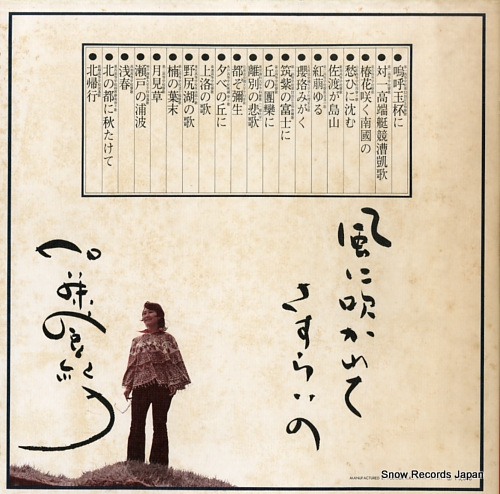 嗚呼玉杯に
対一高端艇競漕凱歌
椿花咲く南國の
愁ひに沈む
佐渡が島山
紅萠ゆる
瓔珞みがく
筑紫の富士に
丘の團欒に
離別の悲歌
都ぞ彌生
夕べの丘に
上洛の歌
野尻湖の歌
楠の葉末
月見草
瀬戸の浦波
浅春
北の都に秋たけて
北帰行
風に吹かれて
さすらいの
MANUFACTURED
Snow Records Japan